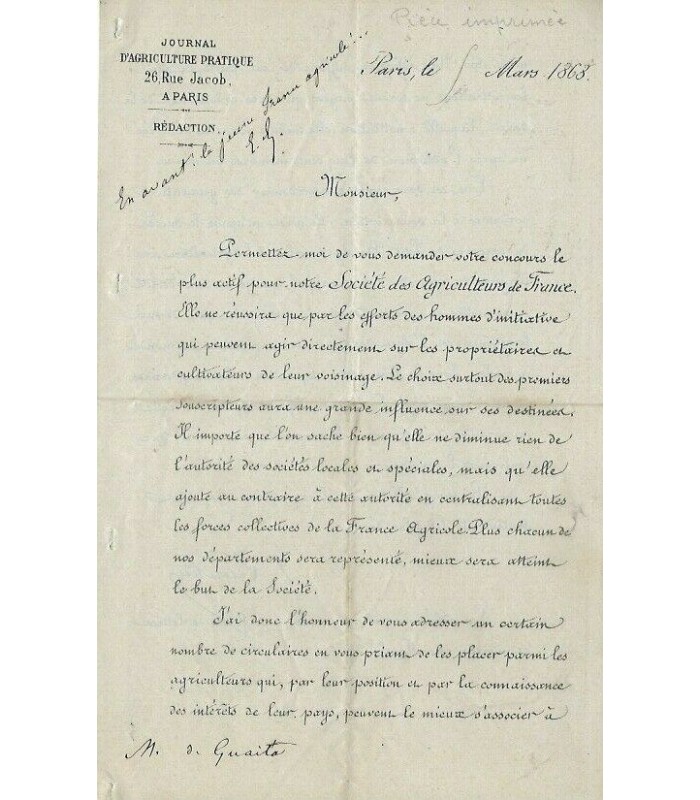 Pièce imprimée
JOURNAL
D'AGRICULTURE PRATIQUE
26, Rue Jacob,
A PARIS
RÉDACTION
En avant! la jeune France agricole!...
Paris, le 5 Mars 1868.
Monsieur,
Permettez moi de vous demander votre concours le
plus actif pour notre Société des Agriculteurs de France.
Elle ne réussira que par les efforts des hommes d'initiative
qui peuvent agir directement sur les propriétaires et
cultivateurs de leur voisinage. Le choix surtout des premiers
souscripteurs aura une grande influence sur ses destinées.
Il importe que l'on sache bien qu'elle ne diminue rien de
l'autorité des sociétés locales et spéciales, mais qu'elle
ajoute au contraire à cette autorité en centralisant toutes
les forces collectives de la France Agricole. Plus chacun de
nos départements sera représenté, mieux sera atteint
le but de la Société.
J'ai donc l'honneur de vous adresser un certain
nombre de circulaires en vous priant de les placer parmi les
agriculteurs qui, par leur position et par la connaissance
des intérêts de leur pays, peuvent le mieux s'associer à
M. de Guaita